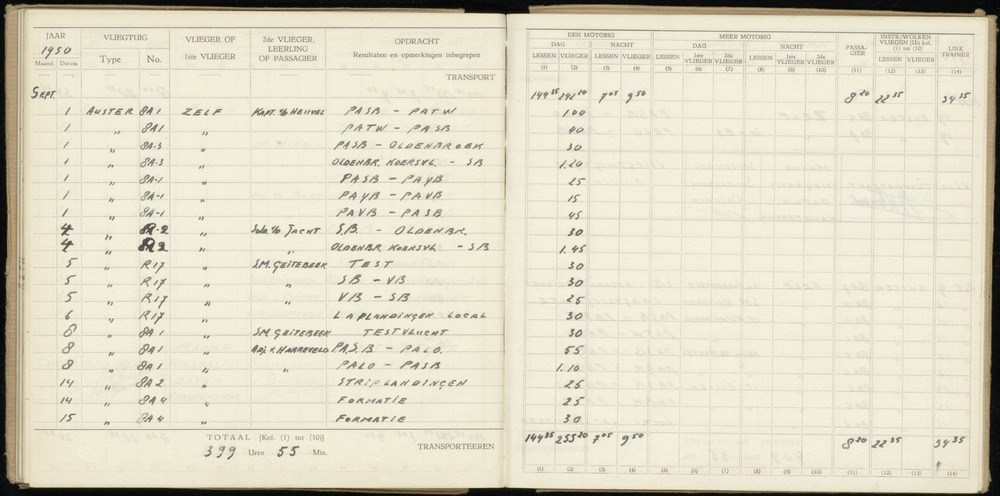 JAAR VLIEGTUIG VLIEGER OF 1ste VLIEGER 2de VLIEGER, LEERLING OF PASSAGIER OPDRACHT Resultaten en opmerkingen inbegrepen
1950
Maand Datum Type No.
TRANSPORT
SEPT.
1 AUSTER 8A1 ZELF KAPT. v/d HEUVEL PASB - PATW
1 " 8A1 " PATW - PASB
1 " 8A-3 " PASB - OLDENBROEK
1 " 8A-3 " OLDENBR. KOERSVL. - SB
1 " 8A-1 " PASB - PAYB
1 " 8A-1 " PAYB - PAVB
1 " 8A-1 " PAVB - PASB
4 " R-2 " v/d JACHT S.B. - OLDENBR.
4 " R2 " OLDENBR KOERSVL - SB
5 " R17 " S.M. GEITEBEEK TEST
5 " R17 " " SB - VB
5 " R17 " " VB - SB
6 " R17 " LAPLANDINGEN LOCAL
8 " 8A1 " SM GEITEBEEK TESTVLUCHT
8 " 8A1 " ADJ. v HARREVELD P.A.S.B. - PALO.
8 " 8A1 " " PALO - PASB
14 " 8A2 " STRIPLANDINGEN
14 " 8A4 " FORMATIE
15 " 8A4 " FORMATIE
TOTAAL [Kol. (1) tot (10)]
399 Uren 55 Min.
TRANSPORTEEREN
EEN MOTORIG MEER MOTORIG PASSAGIER INSTR./WOLKEN VLIEGEN (Uit kol. (1) tot (10) LINK TRAINER
DAG NACHT DAG NACHT
LESSEN VLIEGER LESSEN VLIEGER LESSEN 1ste VLIEGER 2de VLIEGER LESSEN 1ste VLIEGER 2de VLIEGER LESSEN VLIEGER
(1) (2) (3) (4) (5) (6) (7) (8) (9) (10) (11) (12) (13) (14)
144 35 7 05 9 50 8 20 22 35 34 35
1.00
40
30
1.20
25
15
45
30
1.45
30
30
25
30
30
55
1.10
25
25
30
144 35 255 20 7 05 9 50 8 20 22 35 34 35
(1) (2) (3) (4) (5) (6) (7) (8) (9) (10) (11) (12) (13) (14)